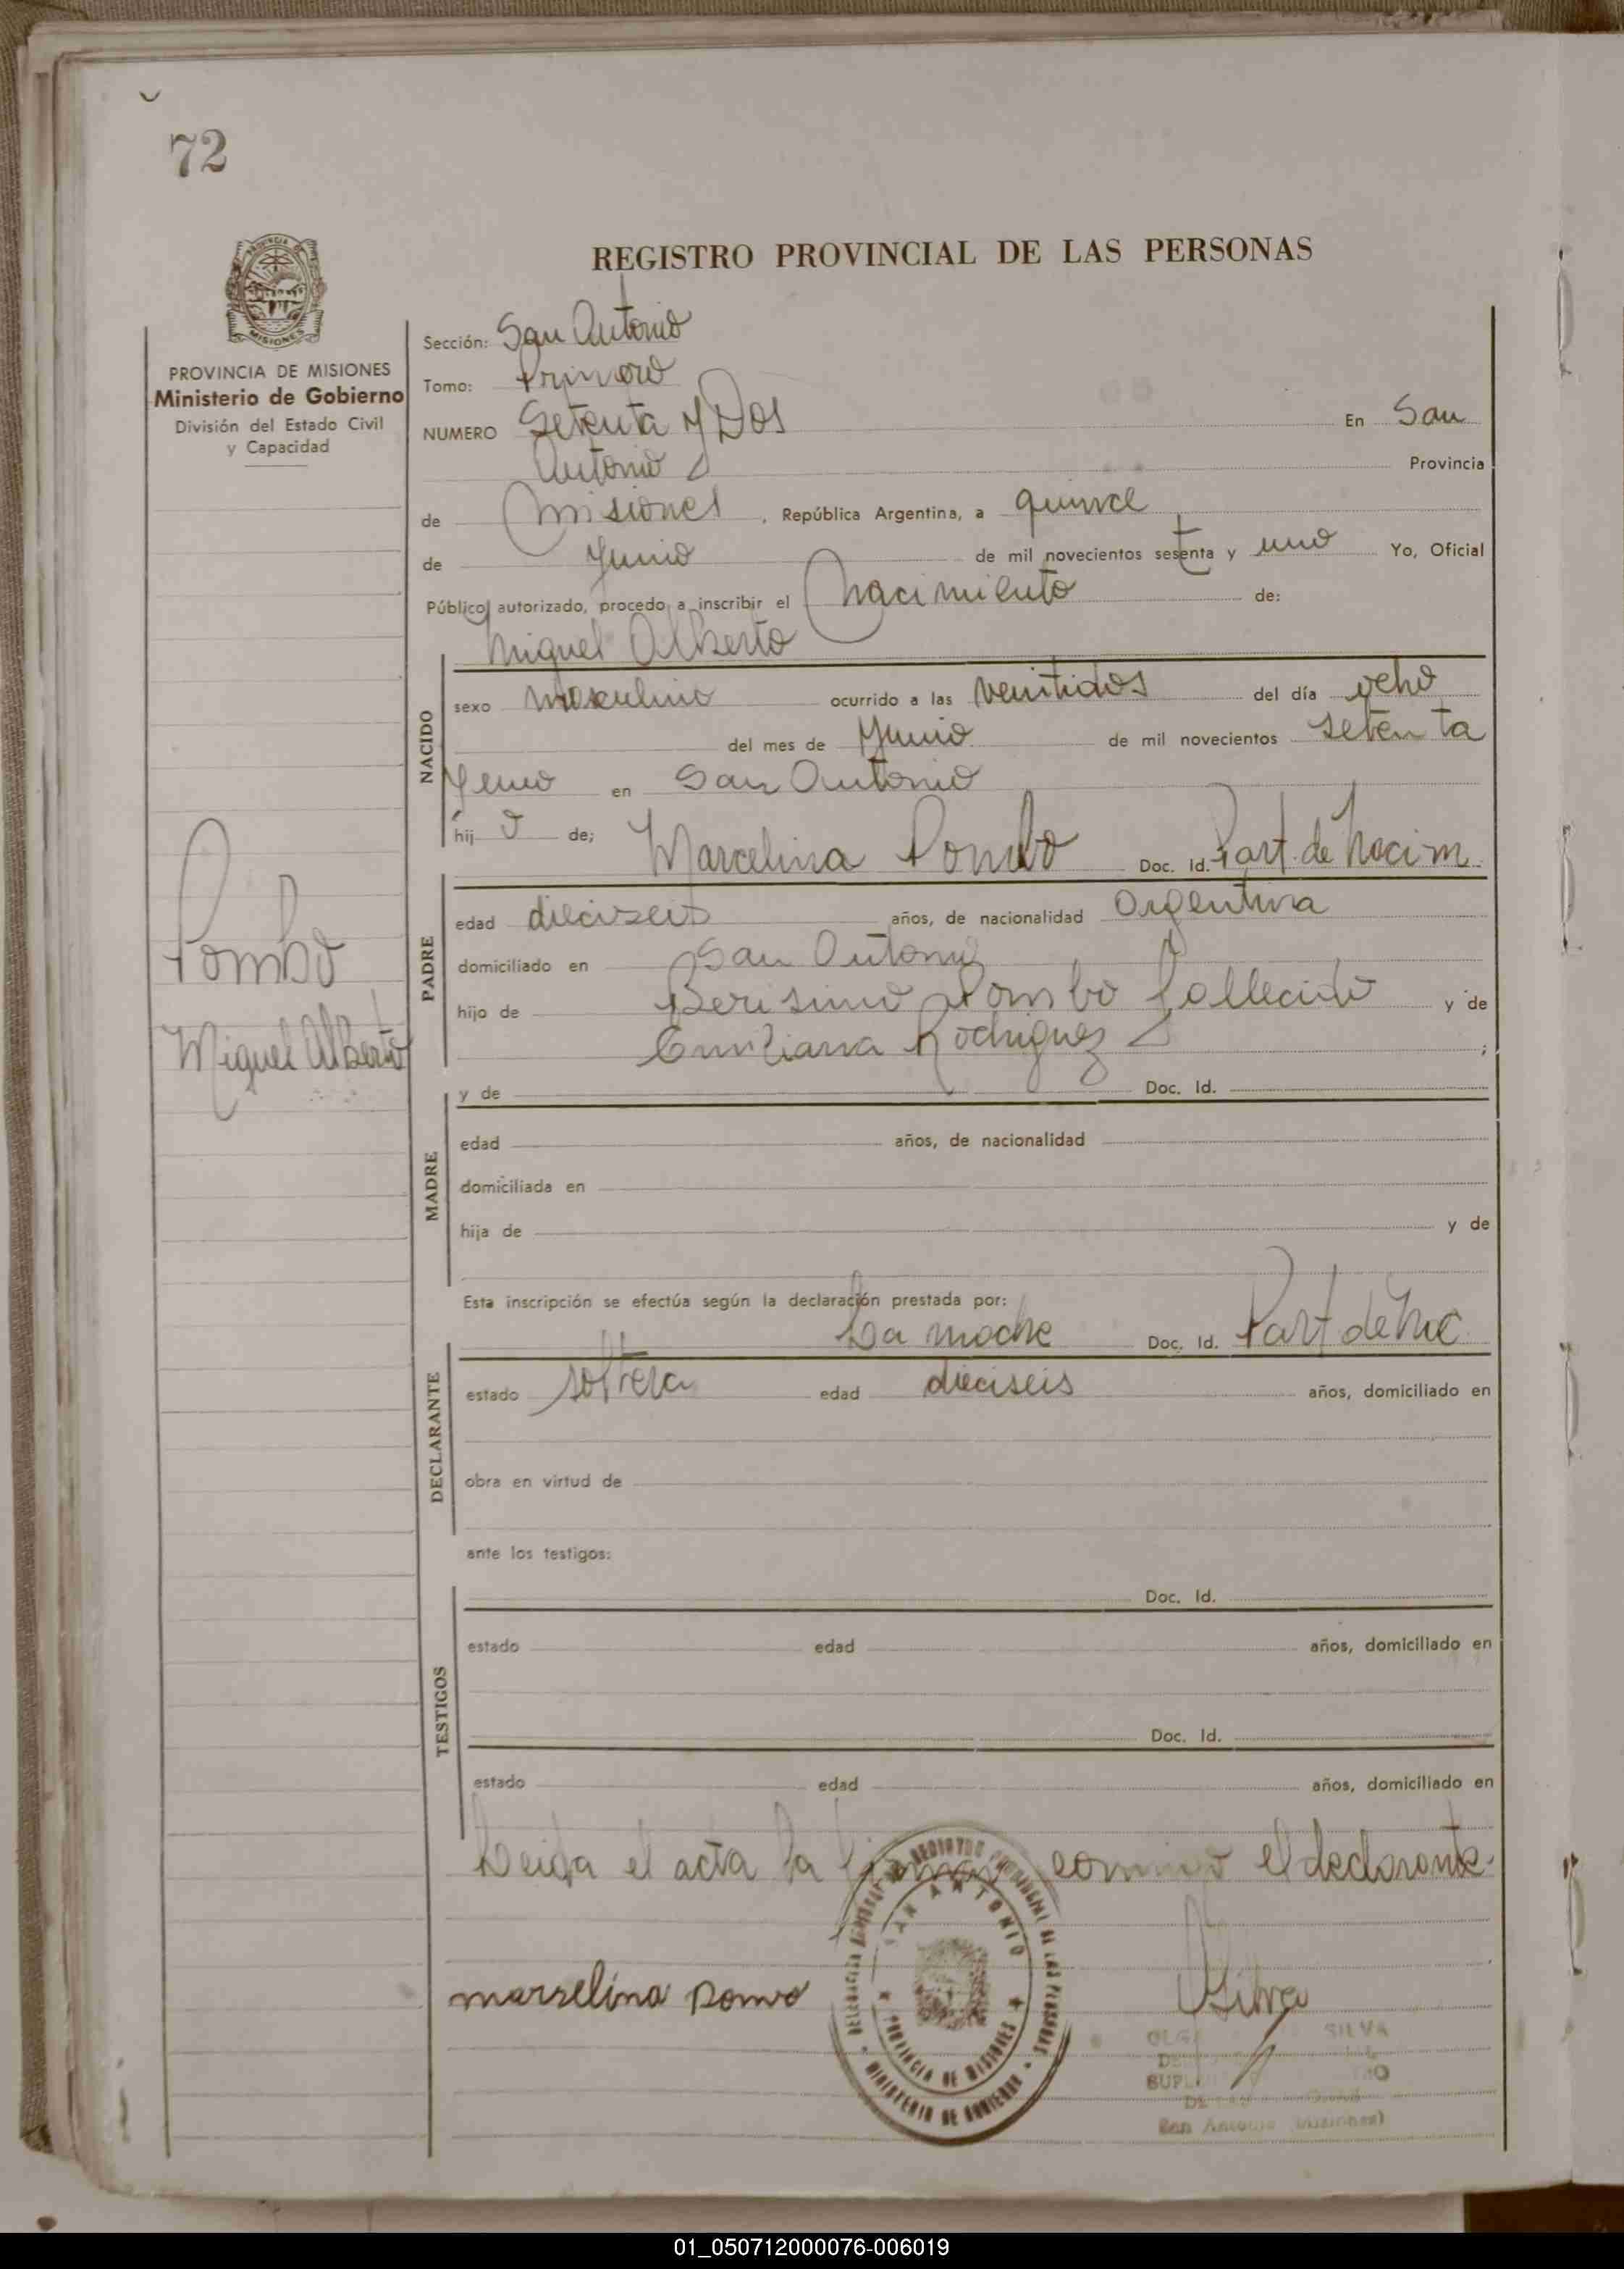 72
REGISTRO PROVINCIAL DE LAS PERSONAS
PROVINCIA DE MISIONES
Ministerio de Gobierno
División del Estado Civil
y Capacidad
Sección: San Antonio
Tomo: Primero
NUMERO Setenta y Dos En San
Antonio Provincia
de Misiones, República Argentina, a quince
de Junio de mil novecientos setenta y uno Yo, Oficial
Público autorizado, procedo a inscribir el Nacimiento de:
Miguel Alberto
NACIDO
sexo masculino ocurrido a las ventidos del día ocho
del mes de Junio de mil novecientos setenta
y uno en San Antonio
hij o de; Marcelina Pombo Doc. Id. Part. de Nacim
PADRE
edad dieciseis años, de nacionalidad Argentina
domiciliado en San Antonio
hijo de Berisimo Pombo fallecido y de
Emiliana Rodriguez ;
Pombo
Miguel Alberto
y de Doc. Id.
MADRE
edad años, de nacionalidad
domiciliada en
hija de y de
Esta inscripción se efectúa según la declaración prestada por:
La madre Doc. Id. Part de Nac
DECLARANTE
estado soltera edad dieciseis años, domiciliado en
obra en virtud de
ante los testigos:
Doc. Id.
TESTIGOS
estado edad años, domiciliado en
Doc. Id.
estado edad años, domiciliado en
Leida el acta la firman conmigo el declarante.
SAN ANTONIO
PROVINCIA DE MISIONES
MINISTERIO DE GOBIERNO
marselina pomvo
OSilva
OLGA SILVA
San Antonio (Misiones)
01_050712000076-006019